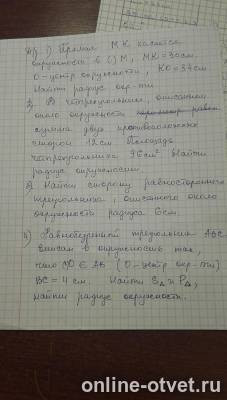 1) Прямая МК касается
окружности в (·) М, МК=30см
О-центр окружности, КО=34см
Найти радиус окр-ти
2. В четырехугольнике, описанном
около окружности равна
сумма двух противополож
сторон 12см Площадь
четырехугольника 36см² Найти
радиус окружности.
3) Найти сторону равностороннего
треугольника, описанного около
окружности радиуса 6см.
4) Равнобедренный треугольник АВС
вписан в окружность так,
что О ∈ АВ (О-центр окр-ти)
ВС=4см. Найти S△ и P△,
найти радиус окружности.
online-otvet.ru